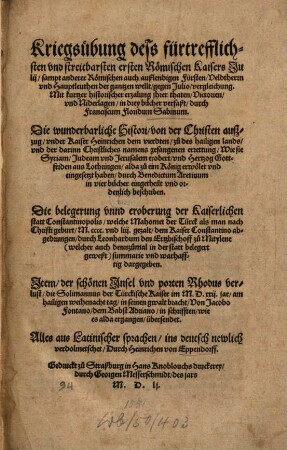 Kriegsübung deß fürtrefflich-
sten vnd streitbarsten ersten Römischen Kaisers Ju
lij / sampt anderer Römischen auch außlendigen Fürsten / Veldtherrn
vnd Hauptleuthen der gantzen wellt / gegen Julio / vergleichung.
Mit kurtzer historischer erzalung jhrer thaten / Victorien / vnd
Niderlagen / in drey bücher verfaßt / durch
Franciscum Floridum Sabinum.
Die wunderbarliche Histori / von der Christen auß-
zug / vnder Kaiser Heinrichen dem vierdten / zů des hailigen lands /
vnd der darinn Christliches namens gefangenen errettung / Wie sie
Syriam / Judeam vnd Jerusalem erobert / vnd Hertzog Gott-
friden auß Lothringen / alda zů eim König erwölet vnd
eingesetzt haben / durch Benedictum Aretinum
in vier bücher eingetheilt vnd or-
denlich beschriben.
Die belegerung vnnd eroberung der Kaiserlichen
statt Constantinopolis / welche Mahomet der Türck als man nach
Christi geburt / M. cccc. vnd liij. gezalt / dem Kaiser Constantino ab-
getrungen / durch Leonhardum den Ertzbischoff zů Mitylene
(welcher auch dennzůmal in der statt belegert
gewest) summarie vnd warhaff-
tig dargegeben.
Item / der schönen Insel vnd porten Rhodus ver-
lust / die Solimannus der Türckische Kaiser im M. D. xxij. jar / am
hailigen weihenacht tag / in seinen gwalt bracht / Von Jacobo
Fontano / dem Babst Adriano / in schrifften / wie
es alda ergangen / übersendet.
Alles auß Latinischer sprachen / ins deutsch newlich
verdolmetschet / Durch Heinrichen von Eppendorff.
Gedruckt zů Straßburg in Hans Knoblouchs druckerey /
durch Georgen Messerschmidt / des jars
M. D. lj.
94